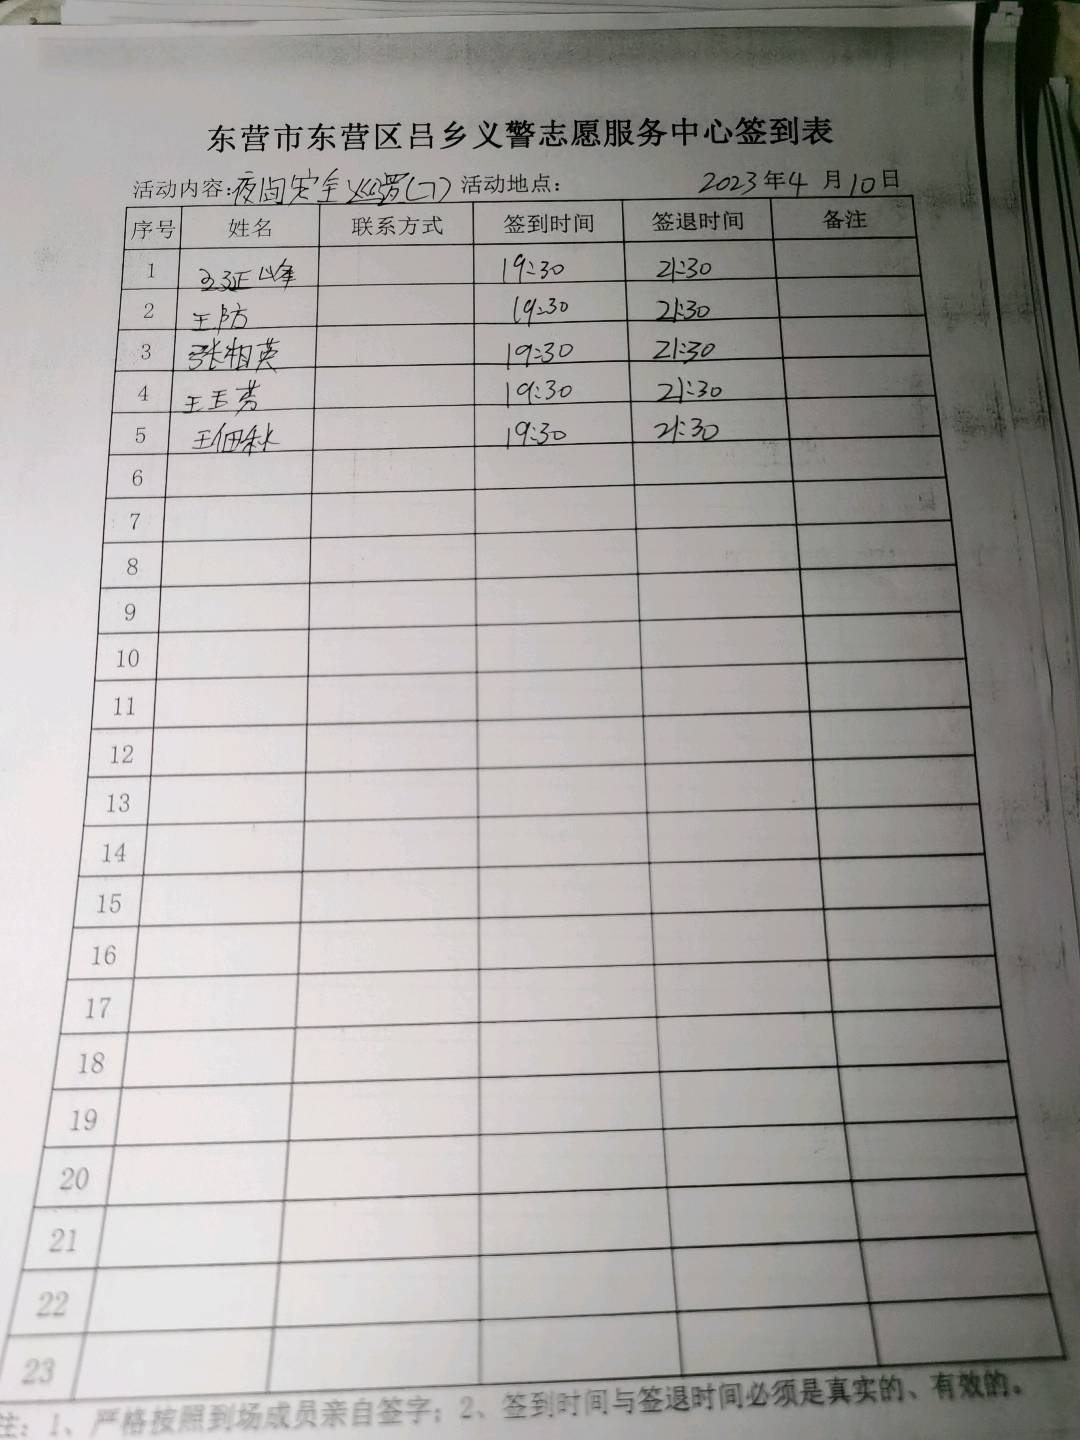 东营市东营区吕乡义警志愿服务中心签到表
活动内容:夜间安全巡逻(二) 活动地点: 2023年4月10日
序号 姓名 联系方式 签到时间 签退时间 备注
1 延峰 19:30 21:30
2 王防 19:30 21:30
3 张相英 19:30 21:30
4 王玉芳 19:30 21:30
5 王佃秋 19:30 21:30
6
7
8
9
10
11
12
13
14
15
16
17
18
19
20
21
22
23
注：1、严格按照到场成员亲自签字；2、签到时间与签退时间必须是真实的、有效的。